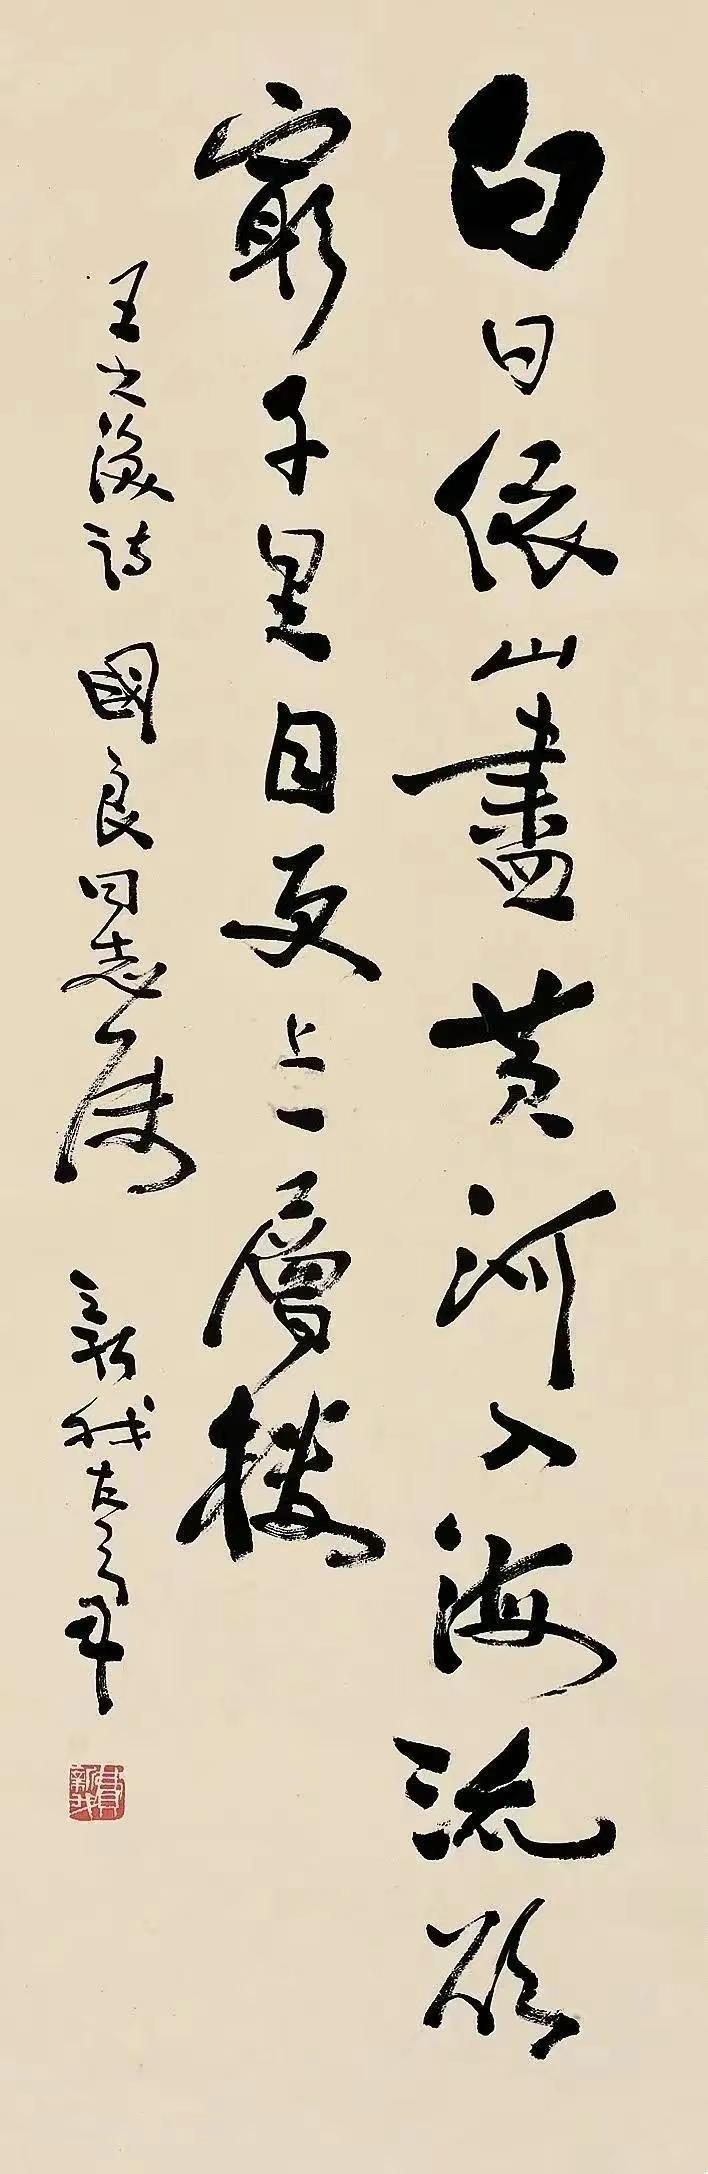 白日依山盡黄河入海流欲
窮千里目更上一層樓
王之渙詩 國良同志屬 新我左筆
費新我